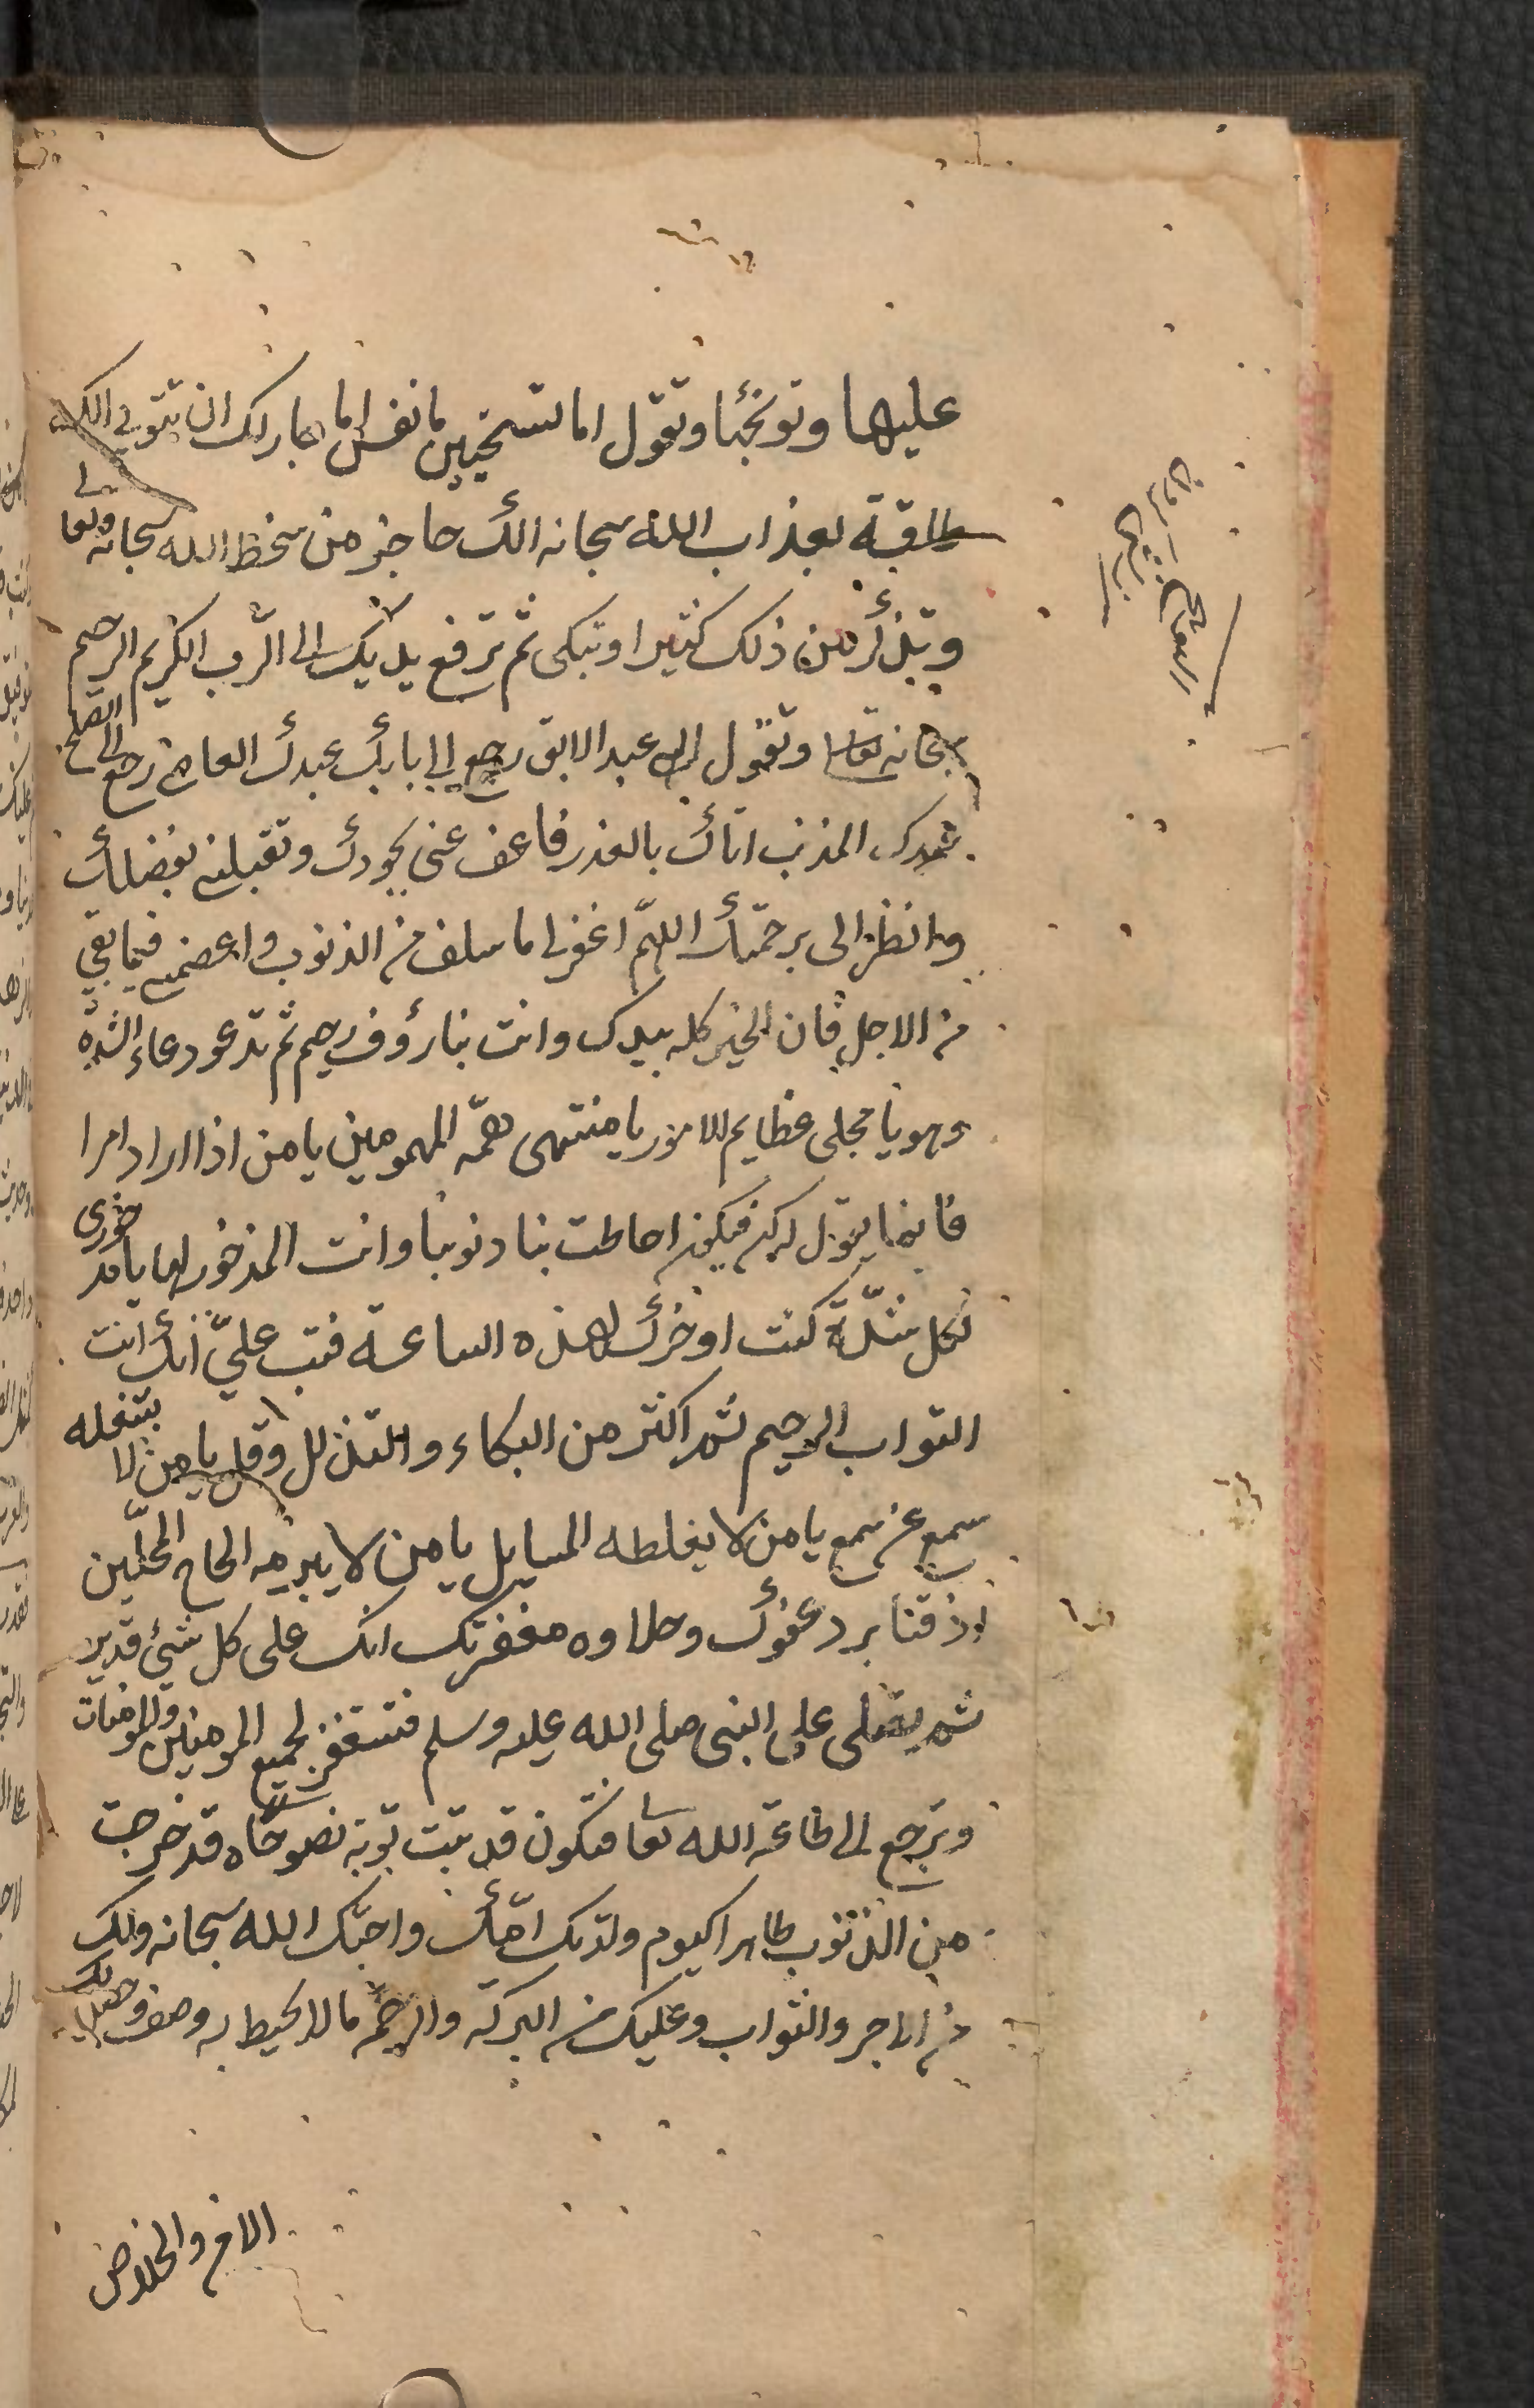 عليها وتوبخها وتقول اما تستحيين يا نفس اما جاز لك ان تتوبي الك
طاقة بعذاب الله سبحانه الك حاجز من سخط الله سبحانه وتعالى
وتذكر من ذلك كثيرا وتبكى ثم ترفع يديك الى الرب الكريم الرحيم
سبحانه تعالى وتقول الهى عبدك الابق رجع الى بابك عبدك العاصى رجع الى الصلح
عبدك المذنب اتاك بالعذر فاعف عنى بجودك وتقبلنى بفضلك
وانظر الى برحمتك اللهم اغفر لى ما سلف من الذنوب واعصمنى فيما بقى
من الاجل فان الخير كله بيدك وانت بنا رؤوف رحيم ثم تدعو دعاء الشدة
وهو يا مجلى عظايم الامور يا منتهى همّة المهمومين يا من اذا اراد امرا
فانما يقول له كن فيكون احاطت بنا ذنوبنا وانت المذخور لها يا مذخورى
لكل شدّة كنت اوخرك لهذه الساعة فتب علىّ انك انت
التواب الرحيم ثم اكثر من البكاء والتذلل وقل يا من لا يشغله
سمع عن سمع يا من لا يغلطه المسايل يا من لا يبرمه الحاح الملحّين
اذقنا برد عفوك وحلاوه مغفرتك انك على كل شئ قدير
ثم يصلى على النبى صلى الله عليه وسلم فتستغفر لجميع المومنين والمومنات
وترجع الى طاعة الله تعالى فتكون قد تبت توبة نصوحاه قد خرجت
من الذنوب طاهرا كيوم ولدتك امّك واحبّك الله سبحانه ولك
من الاجر والثواب وعليك من البركة والرحمة ما لا يحيط به وصف وحصل لك
الامن والخلاص